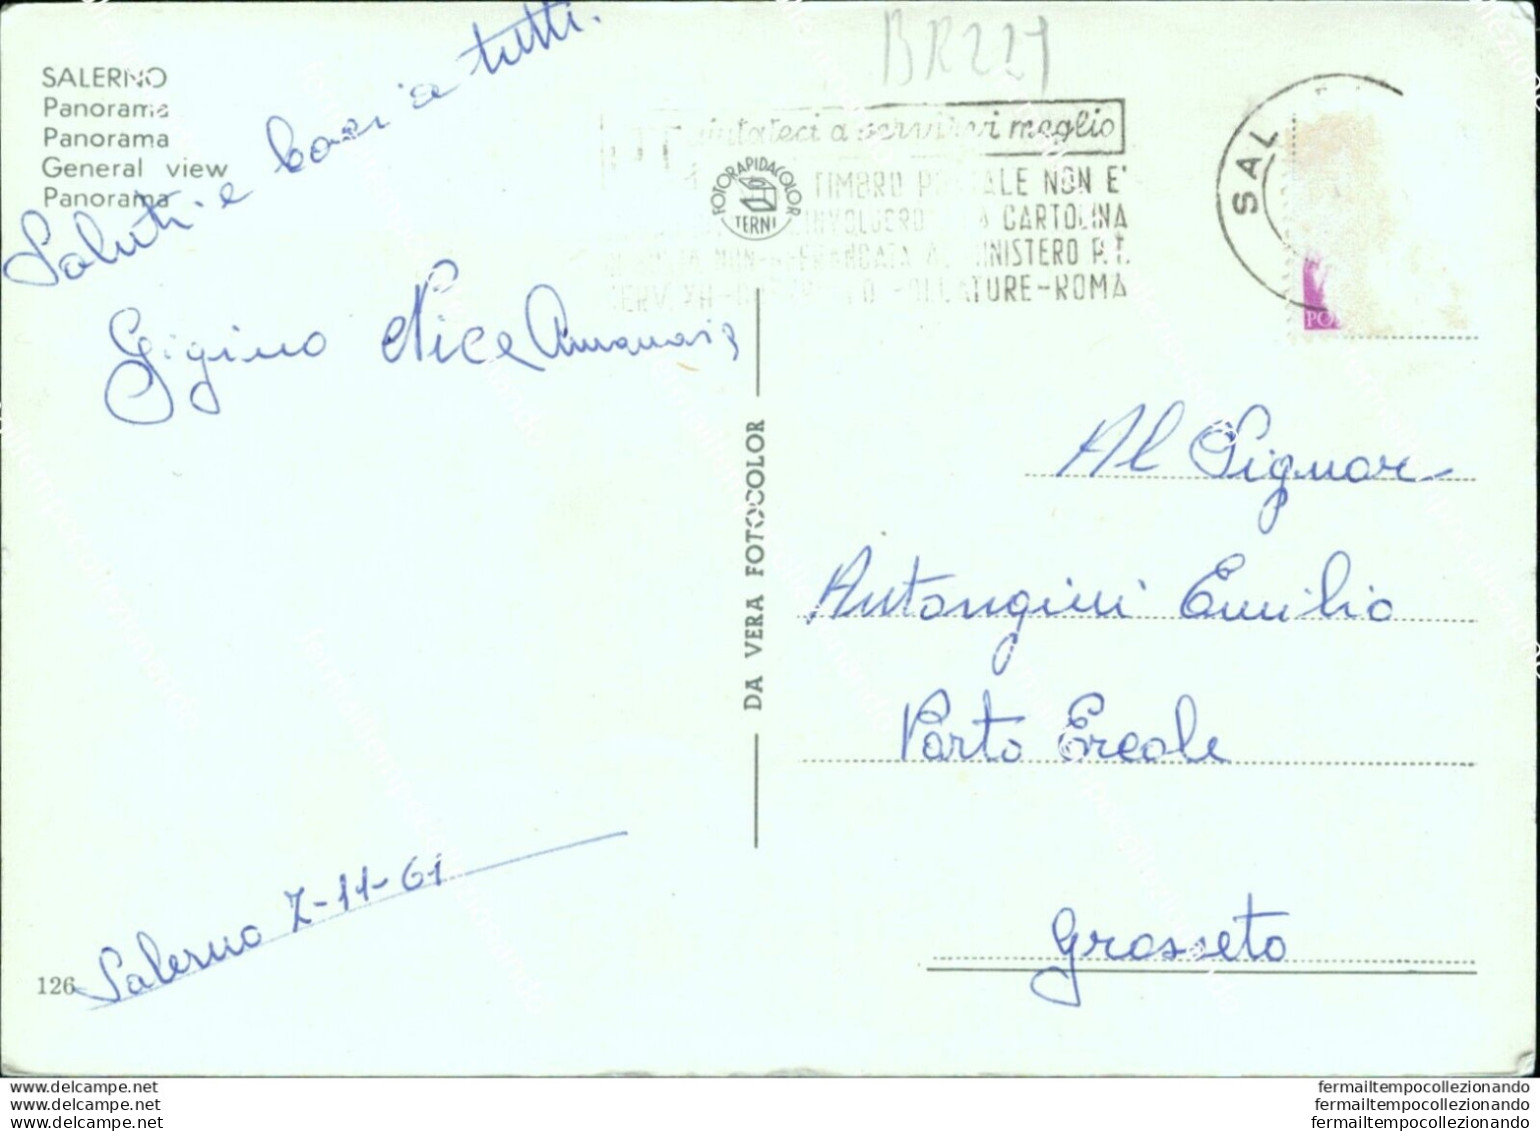 BR221
SALERNO
Panorama
Panorama
General view
Panorama
Saluti e baci a tutti.
Gigino Nice Annamaria
aiutateci a servirvi meglio
TIMBRO POSTALE NON E'
INVOLUCRO LA CARTOLINA
NON AFFRANCATA AL MINISTERO P.T.
SERV. XII - ROMA
FOTORAPIDACOLOR
TERNI
SAL
PO
DA VERA FOTOCOLOR
Al Signor
Antongini Emilio
Porto Ercole
Grosseto
Salerno 7-11-61
126
www.delcampe.net
www.delcampe.net
www.delcampe.net
fermailtempocollezionando
fermailtempocollezionando
fermailtempocollezionando